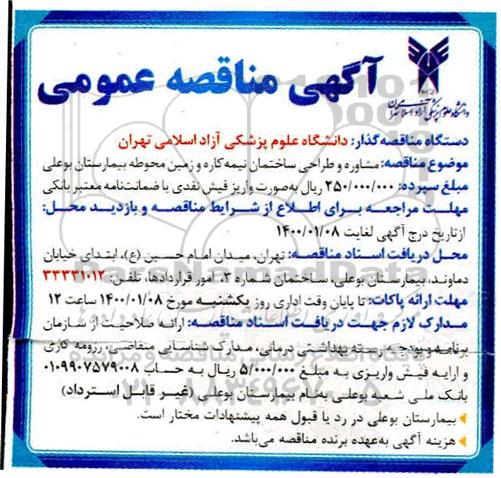 آگهی مناقصه عمومی
دانشگاه علوم پزشکی آزاد اسلامی تهران
دستگاه مناقصه‌گذار: دانشگاه علوم پزشکی آزاد اسلامی تهران
موضوع مناقصه: مشاوره و طراحی ساختمان نیمه کاره و زمین محوطه بیمارستان بوعلی
مبلغ سپرده: ۲۵۰/۰۰۰/۰۰۰ ریال به‌صورت واریز فیش نقدی یا ضمانت‌نامه معتبر بانکی
مهلت مراجعه برای اطلاع از شرایط مناقصه و بازدید محل:
از تاریخ درج آگهی لغایت ۱۴۰۰/۰۱/۰۸
محل دریافت اسناد مناقصه: تهران، میدان امام حسین (ع)، ابتدای خیابان
دماوند، بیمارستان بوعلی، ساختمان شماره ۳، امور قراردادها، تلفن: ۳۳۳۳۱۰۱۲
مهلت ارائه پاکات: تا پایان وقت اداری روز یکشنبه مورخ ۱۴۰۰/۰۱/۰۸ ساعت ۱۲
مدارک لازم جهت دریافت اسناد مناقصه: ارائه صلاحیت از سازمان
برنامه و بودجه رسته بهداشتی درمانی، مدارک شناسایی متقاضی، رزومه کاری
و ارایه فیش واریزی به مبلغ ۵/۰۰۰/۰۰۰ ریال به حساب ۰۱۰۹۹۰۷۵۷۹۰۰۸
بانک ملی شعبه بوعلی به‌نام بیمارستان بوعلی (غیر قابل استرداد)
بیمارستان بوعلی در رد یا قبول همه پیشنهادات مختار است.
هزینه آگهی به‌عهده برنده مناقصه می‌باشد.
ParsNamadData
۰۲۱-۸۸۳۴۹۶۷۰-۵